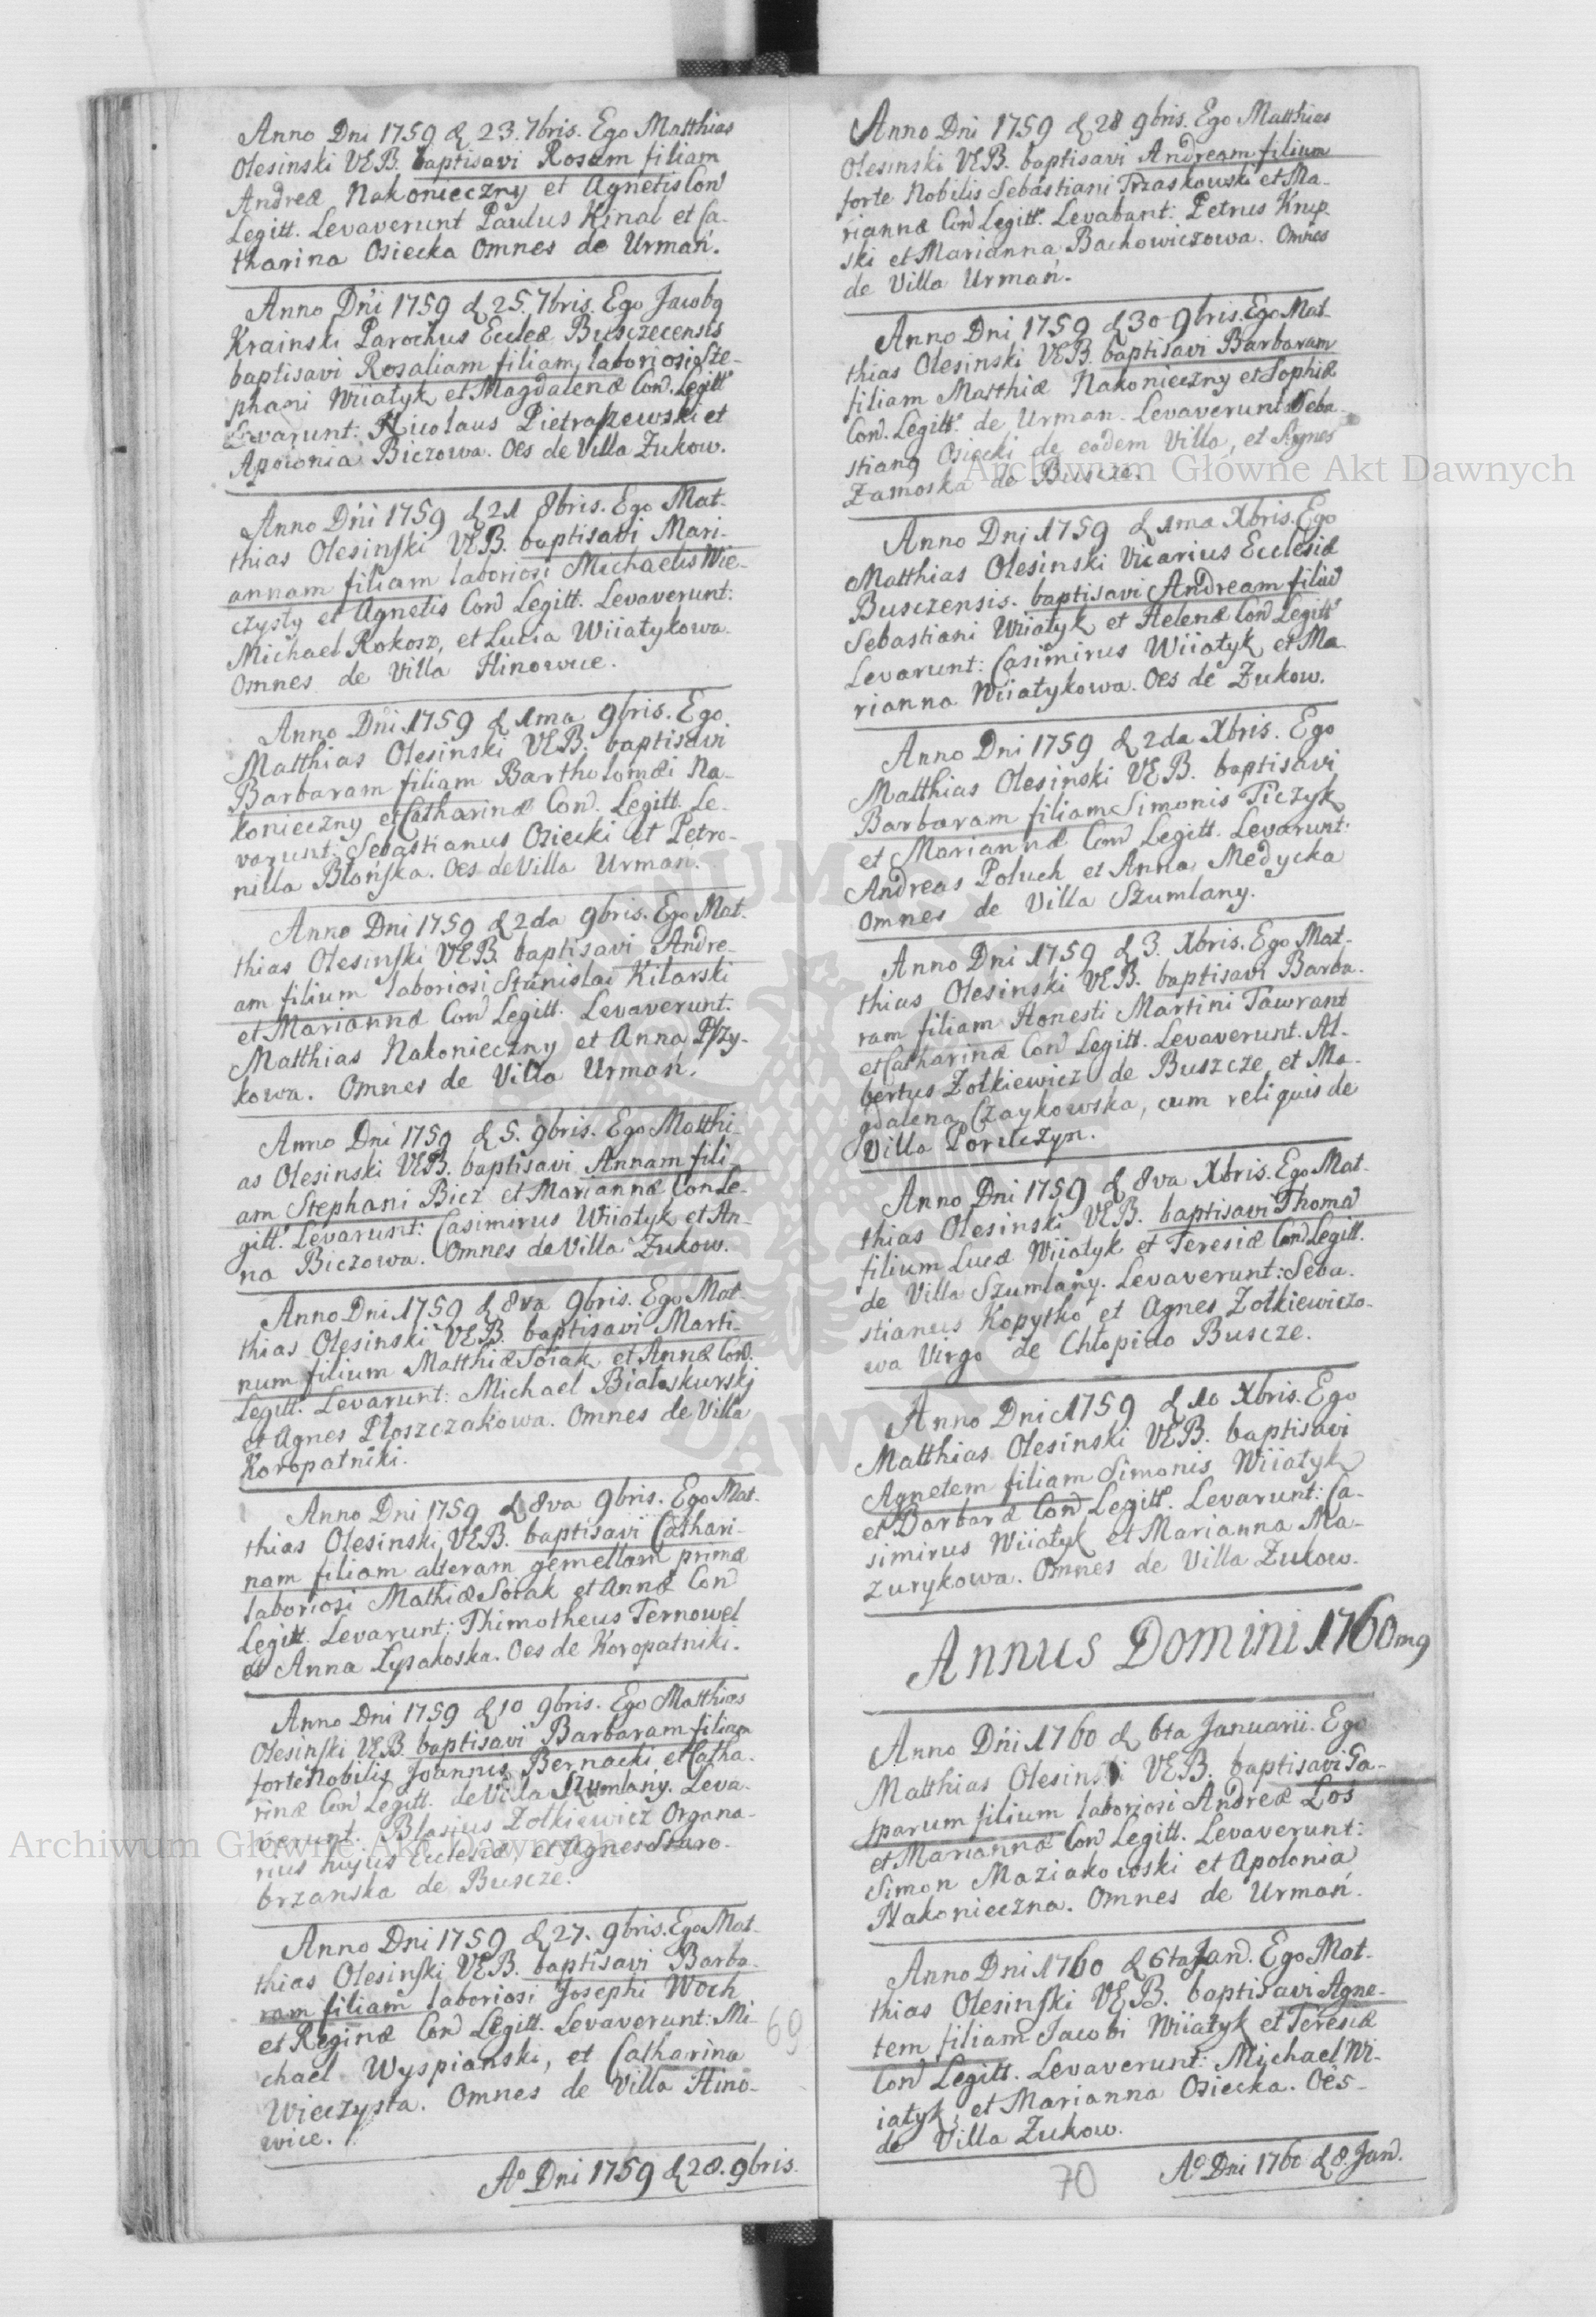 Anno Dni 1759 d 23. 7bris. Ego Matthias
Olesinski VEB. baptisavi Rosam filiam
Andreæ Nakonieczny et Agnetis Con̄
Legitt. Levaverunt Paulus Kinal et Ca-
tharina Osiecka Omnes de Urmań.
Anno Dn̄i 1759 d 25. 7bris. Ego Jacobq
Krainski Parochus Eccleæ Busczecensis
baptisavi Rosaliam filiam laboriosi Ste-
phani Wiiatyk et Magdalenæ Con. Legitt
Levarunt: Nicolaus Pietraszewski et
Apolonia Biczowa. Oēs de Villa Zukow.
Anno Dn̄i 1759 d 21 8bris. Ego Mat-
thias Olesinski VEB. baptisavi Mari-
annam filiam laboriosi Michaelis Wie-
czysty et Agnetis Con̄ Legitt. Levaverunt:
Michael Rokosz, et Lucia Wiiatykowa.
Omnes de Villa Hinowice.
Anno Dn̄i 1759 d 1ma 9bris. Ego
Matthias Olesinski VEB. baptisavi
Barbaram filiam Bartholomæi Na-
konieczny et Catharinæ Con̄. Legitt. Le-
varunt: Sebastianus Osiecki et Petro-
nilla Blonska. Oes de Villa Urmań.
Anno Dni 1759 d 2da 9bris. Ego Mat-
thias Olesinski VEB. baptisavi Andre-
am filium laboriosi Stanislai Kilarski
et Mariannæ Con̄ Legitt. Levaverunt.
Matthias Nakonieczny et Anna Pszy-
kowa. Omnes de Villa Urmań.
Anno Dni 1759 d 5. 9bris. Ego Matthi-
as Olesinski VEB. baptisavi Annam fili-
am Stephani Bicz et Mariannæ Con Le-
gitt. Levarunt: Casimirus Wiiatyk et An-
na Biczowa. Omnes de Villa Zukow.
Anno Dni 1759 d 8va 9bris. Ego Mat-
thias Olesinski VEB. baptisavi Marti-
num filium Matthiæ Soiak et Annæ Con̄.
Legitt. Levarunt: Michael Bialoskurski
et Agnes Ploszczakowa. Omnes de Villa
Koropatniki.
Anno Dni 1759 d 8va 9bris. Ego Mat-
thias Olesinski VEB. baptisavi Cathari-
nam filiam alteram gemellam primæ
laboriosi Mathiæ Soiak et Annæ Con̄
Legitt. Levarunt: Thimotheus Ternowel
et Anna Lysakoska. Oes de Koropatniki.
Anno Dni 1759 d 10 9bris. Ego Matthias
Olesinski VEB. baptisavi Barbaram filiam
forte Nobilis Joannis Bernacki et Catha-
rinæ Con̄ Legitt. de Villa Szumlany. Leva-
verunt. Blasius Zolkiewicz Organa-
rius hujus Ecclesiæ, et Agnes Staro-
brzanska de Buscze.
Anno Dni 1759 d 27. 9bris. Ego Mat-
thias Olesinski VEB. baptisavi Barba-
ram filiam laboriosi Josephi Woch
et Reginæ Con̄ Legitt. Levaverunt: Mi-
chael Wyspianski, et Catharina
Wieczysta. Omnes de Villa Hino-
wice.
Aº Dni 1759 d 28. 9bris.
69
Anno Dni 1759 d 28 9bris. Ego Matthias
Olesinski VEB. baptisavi Andream filium
forte Nobilis Sebastiani Trzaskowski et Ma-
riannæ Con̄ Legitt. Levabant: Petrus Krup-
ski et Marianna Bachowiczowa. Omnes
de Villa Urmań.
Anno Dni 1759 d 30 9bris. Ego Mat-
thias Olesinski VEB. baptisavi Barbaram
filiam Matthiæ Nakonieczny et Sophiæ
Con. Legitt. de Urman. Levaverunt Seba-
stianq Osiecki de eodem Villa, et Agnes
Zamoska de Buscze.
Anno Dni 1759 d 1ma Xbris. Ego
Matthias Olesinski Vicarius Ecclesiæ
Busczensis. baptisavi Andream filiū
Sebastiani Wiiatyk et Helenæ Con̄ Legitt
Levarunt: Casimirus Wiiatyk et Ma-
rianna Wiiatykowa. Oes de Zukow.
Anno Dni 1759 d 2da Xbris. Ego
Matthias Olesinski VEB. baptisavi
Barbaram filiam Simonis Ticzyk
et Mariannæ Con̄ Legitt. Levarunt:
Andreas Poluch et Anna Medycka
Omnes de Villa Szumlany.
Anno Dni 1759 d 3. Xbris. Ego Mat-
thias Olesinski VEB. baptisavi Barba-
ram filiam Honesti Martini Tawrant
et Catharinæ Con̄ Legitt. Levaverunt. Al-
bertus Zolkiewicz de Buszcze et Ma-
gdalena Czaykowska, cum reliquis de
Villa Poruczyn.
Anno Dni 1759 d 8va Xbris. Ego Mat-
thias Olesinski VEB. baptisavi Thomā
filium Lucæ Wiiatyk et Teresiæ Con̄ Legitt.
de Villa Szumlany. Levaverunt: Seba-
stianus Kopytko et Agnes Zolkiewiczo-
wa Virgo de Chlopido Buscze.
Anno Dni 1759 d 10 Xbris. Ego
Matthias Olesinski VEB. baptisavi
Agnetem filiam Simonis Wiiatyk
et Barbaræ Con̄ Legitt. Levarunt: Ca-
simirus Wiiatyk et Marianna Ma-
zurykowa. Omnes de Villa Zukow.
Annus Domini 1760mq
Anno Dn̄i 1760 d 6ta Januarii. Ego
Matthias Olesinski VEB. baptisavi Ga-
sparum filium laboriosi Andreæ Łoś
et Mariannæ Con̄ Legitt. Levaverunt:
Simon Maziakowski et Apolonia
Nakonieczna. Omnes de Urmań.
Anno Dni 1760 d 6ta Jan̄. Ego Mat-
thias Olesinski VEB. baptisavi Agne-
tem filiam Jacobi Wiiatyk et Teresiæ
Con̄ Legitt. Levaverunt: Michael Wi-
iatyk, et Marianna Osiecka. Oēs
de Villa Zukow.
Aº Dni 1760 d 8. Jan̄.
70
Archiwum Główne Akt Dawnych
Archiwum Główne Akt Dawnych